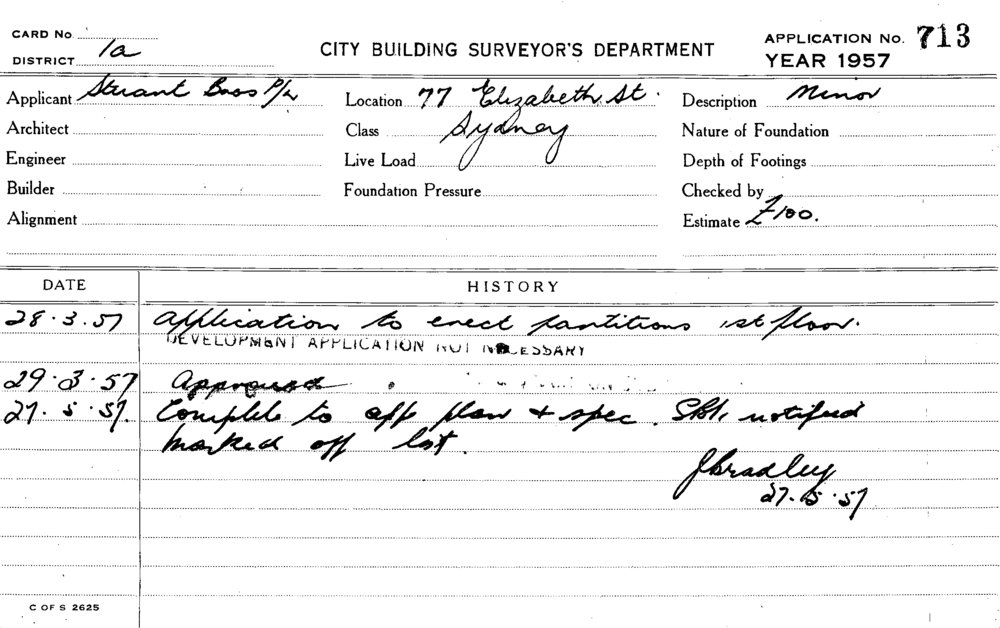 CARD No.
DISTRICT 1a
CITY BUILDING SURVEYOR'S DEPARTMENT
APPLICATION No. 713
YEAR 1957
Applicant Stuart Bros P/L
Location 77 Elizabeth St.
Description Minor
Architect
Class Sydney
Nature of Foundation
Engineer
Live Load
Depth of Footings
Builder
Foundation Pressure
Checked by
Alignment
Estimate £100.
DATE HISTORY
28.3.57 Application to erect partitions 1st floor.
DEVELOPMENT APPLICATION NOT NECESSARY
29.3.57 Approved
27.5.57. Complete to app plan & spec. notified
marked off list.
J Bradley
27.5.57
C OF S 2625